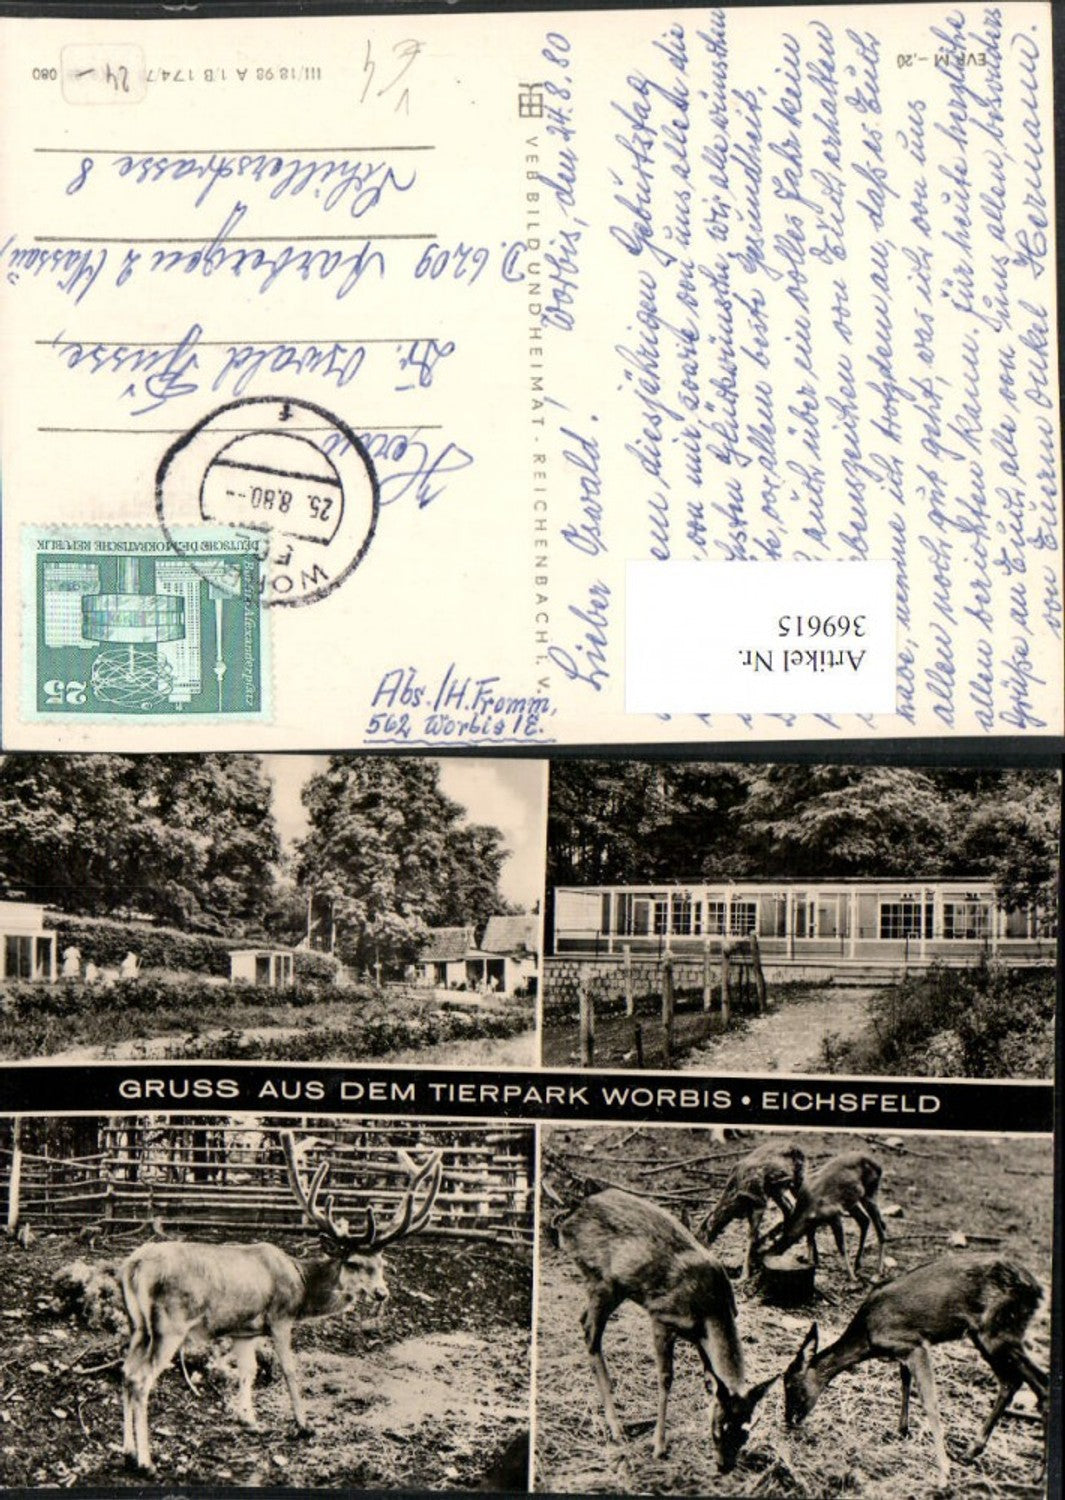 III/18 98 A 1/B 174/7 080
24 –
EVP M –,20
VEB BILD UND HEIMAT · REICHENBACH i. V.
Worbis, den 24.8.80
Lieber Oswald!
diesjährigen Geburtstag
von mir sowie von uns allen die
Glückwünsche. Wir alle wünschen
vor allem beste Gesundheit,
auch über ein volles Jahr kein
Lebenszeichen von Euch erhalten
habe, nehme ich trotzdem an, daß es Euch
allen noch gut geht, was ich von uns
allen berichten kann. Für heute herzliche
Grüße an Euch alle von uns allen, besonders
von Euerm Onkel Hermann.
Herrn
Dr. Oswald Husse,
D. 6209 Aarbergen 2 (Nassau)
Schillerstrasse 8
WORBIS
25. 8. 80
f
DEUTSCHE DEMOKRATISCHE REPUBLIK
Berlin-Alexanderplatz
25
Abs./H. Fromm,
562 Worbis/E.
Artikel Nr.
369615
GRUSS AUS DEM TIERPARK WORBIS • EICHSFELD